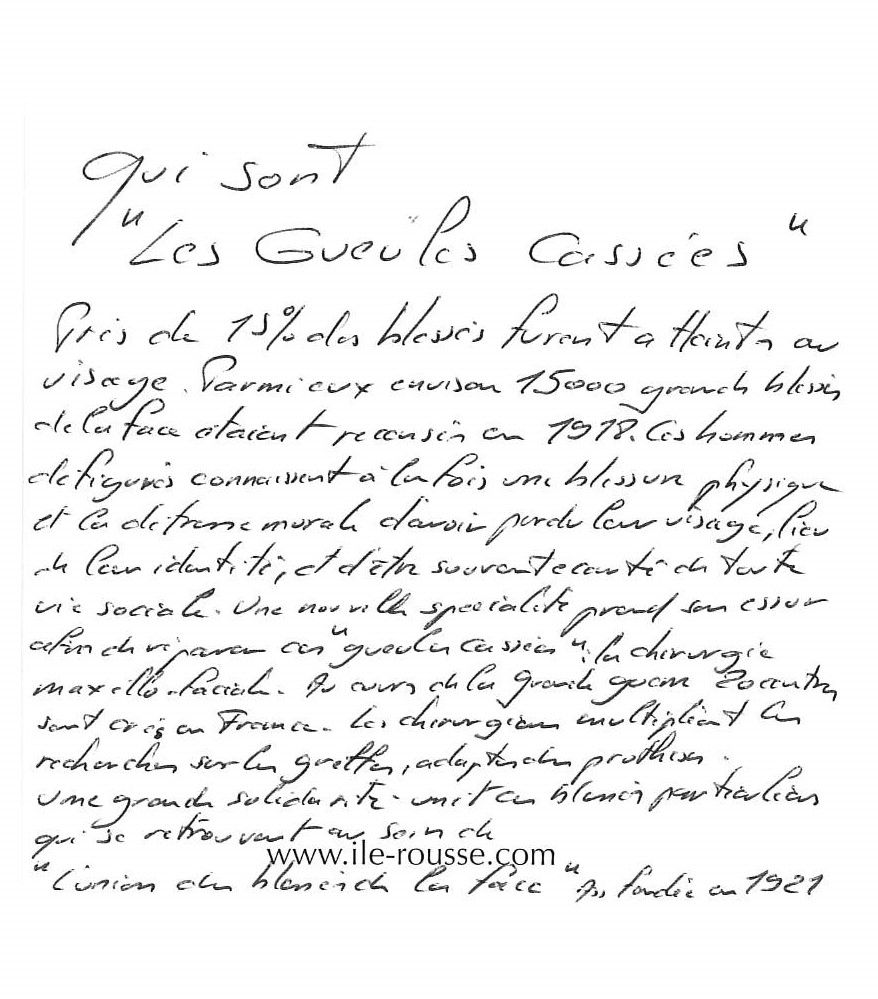 qui sont
"Les Gueules Cassées"
Près de 15% des blessés furent atteints au
visage. Parmi eux environ 15000 grands blessés
de la face étaient recensés en 1918. Ces hommes
défigurés connaissent à la fois une blessure physique
et la détresse morale d'avoir perdu leur visage, lieu
de leur identité, et d'être souvent écarté de toute
vie sociale. Une nouvelle spécialité prend son essor
afin de réparer ces "gueules cassées": la chirurgie
maxillo-faciale. Au cours de la Grande guerre 20 centres
sont créés en France. Les chirurgiens multiplient les
recherches sur les greffes, adaptes des prothèses.
Une grande solidarité unit ces blessés particuliers
qui se retrouvent au sein de
www.ile-rousse.com
"L'union des blessés de la face" Ass fondée en 1921